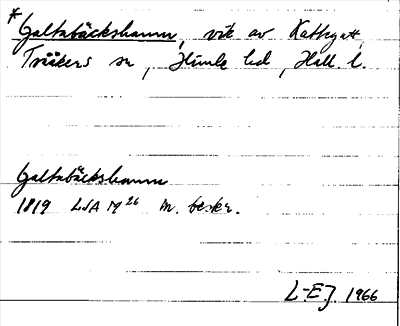 * Galtabäckshamn, vik av Kattegatt,
Träslövs sn, Himle hd, Hall. l.
Galtabäckshamn
1819 LSA M 26 m. beskr.
L-EJ. 1966